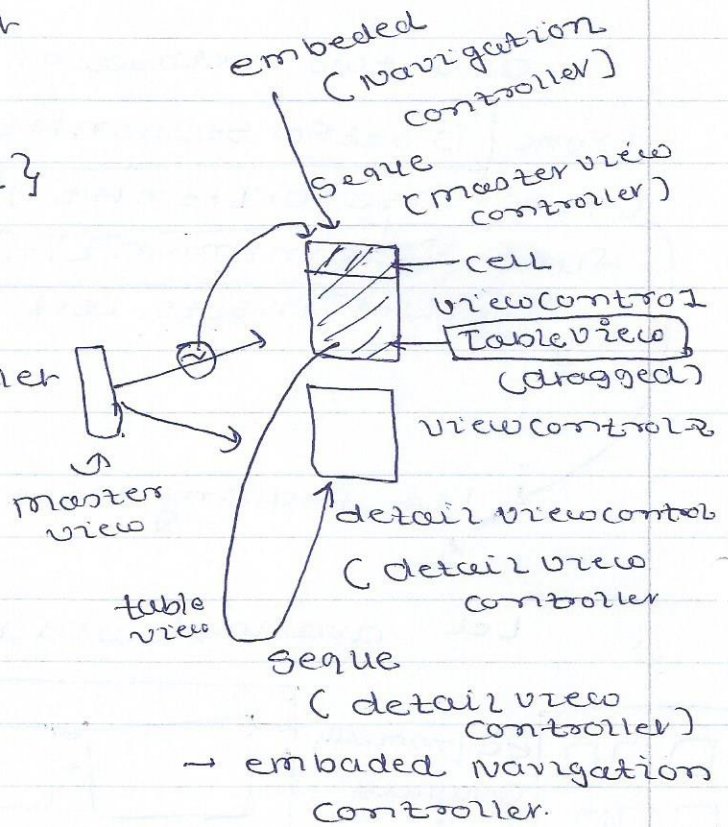 embeded
(Navigation
controller)
}
segue
(master view
controller)
cell
viewcontrol1
Tableview
(dragged)
ler
viewcontrol-2
master
view
detail viewcontrol
(detail view
controller
table
view
segue
(detail view
controller)
→ embaded Navigation
controller.